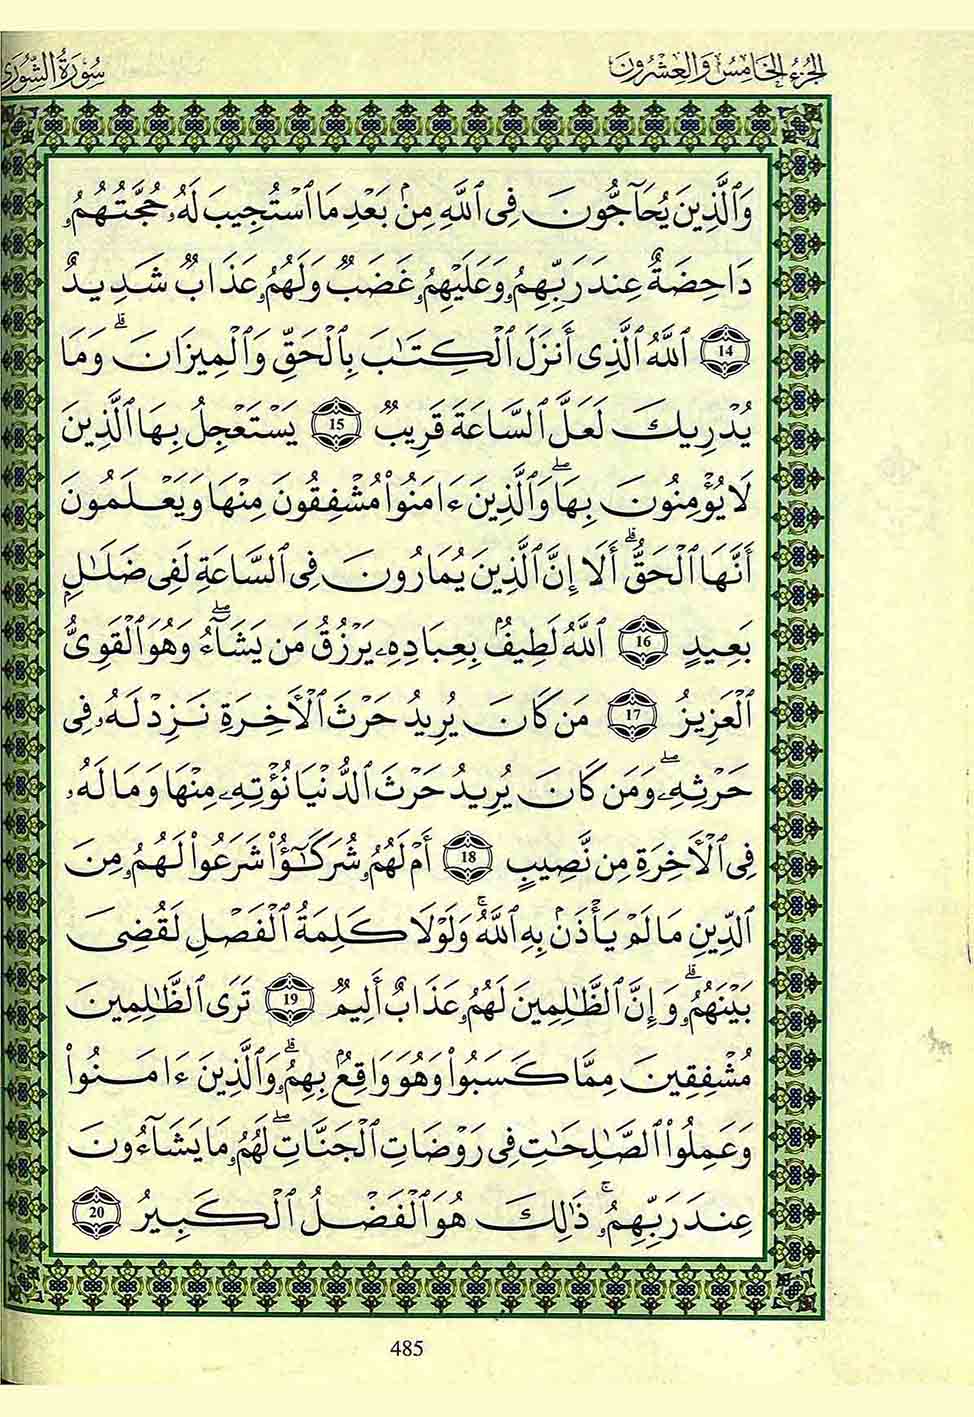 الجزء الخامس والعشرون
سورة الشورى
وَٱلَّذِينَ يُحَآجُّونَ فِى ٱللَّهِ مِنۢ بَعْدِ مَا ٱسْتُجِيبَ لَهُۥ حُجَّتُهُمُۥ
دَاحِضَةٌ عِندَ رَبِّهِمُۥ وَعَلَيْهِمُۥ غَضَبٌ وَلَهُمُۥ عَذَابٌ شَدِيدٌ
14 ٱللَّهُ ٱلَّذِى أَنزَلَ ٱلْكِتَٰبَ بِٱلْحَقِّ وَٱلْمِيزَانَ ۗ وَمَا
يُدْرِيكَ لَعَلَّ ٱلسَّاعَةَ قَرِيبٌ 15 يَسْتَعْجِلُ بِهَا ٱلَّذِينَ
لَا يُؤْمِنُونَ بِهَا ۖ وَٱلَّذِينَ ءَامَنُوا۟ مُشْفِقُونَ مِنْهَا وَيَعْلَمُونَ
أَنَّهَا ٱلْحَقُّ ۗ أَلَا إِنَّ ٱلَّذِينَ يُمَارُونَ فِى ٱلسَّاعَةِ لَفِى ضَلَٰلٍ
بَعِيدٍ 16 ٱللَّهُ لَطِيفٌ بِعِبَادِهِۦ يَرْزُقُ مَن يَشَآءُ ۖ وَهُوَ ٱلْقَوِىُّ
ٱلْعَزِيزُ 17 مَن كَانَ يُرِيدُ حَرْثَ ٱلْأَخِرَةِ نَزِدْ لَهُۥ فِى
حَرْثِهِۦ ۖ وَمَن كَانَ يُرِيدُ حَرْثَ ٱلدُّنْيَا نُؤْتِهِۦ مِنْهَا وَمَا لَهُۥ
فِى ٱلْأَخِرَةِ مِن نَّصِيبٍ 18 أَمْ لَهُمُۥ شُرَكَٰٓؤُا۟ شَرَعُوا۟ لَهُمُۥ مِنَ
ٱلدِّينِ مَا لَمْ يَأْذَنۢ بِهِ ٱللَّهُ ۚ وَلَوْلَا كَلِمَةُ ٱلْفَصْلِ لَقُضِىَ
بَيْنَهُمُۥ ۗ وَإِنَّ ٱلظَّٰلِمِينَ لَهُمُۥ عَذَابٌ أَلِيمٌ 19 تَرَى ٱلظَّٰلِمِينَ
مُشْفِقِينَ مِمَّا كَسَبُوا۟ وَهُوَ وَاقِعٌۢ بِهِمُۥ ۗ وَٱلَّذِينَ ءَامَنُوا۟
وَعَمِلُوا۟ ٱلصَّٰلِحَٰتِ فِى رَوْضَاتِ ٱلْجَنَّاتِ ۖ لَهُمُۥ مَا يَشَآءُونَ
عِندَ رَبِّهِمُۥ ۚ ذَٰلِكَ هُوَ ٱلْفَضْلُ ٱلْكَبِيرُ 20
485